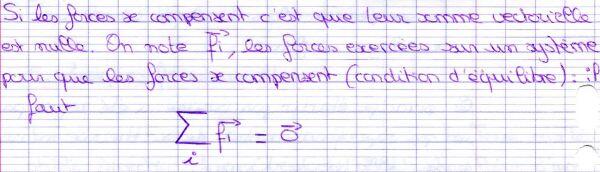 Si les forces se compensent c'est que leur somme vectorielle
est nulle. On note \vec{f_i}, les forces exercées sur un système
pour que les forces se compensent (condition d'équilibre) : il
faut
\sum_i \vec{f_i} = \vec{0}